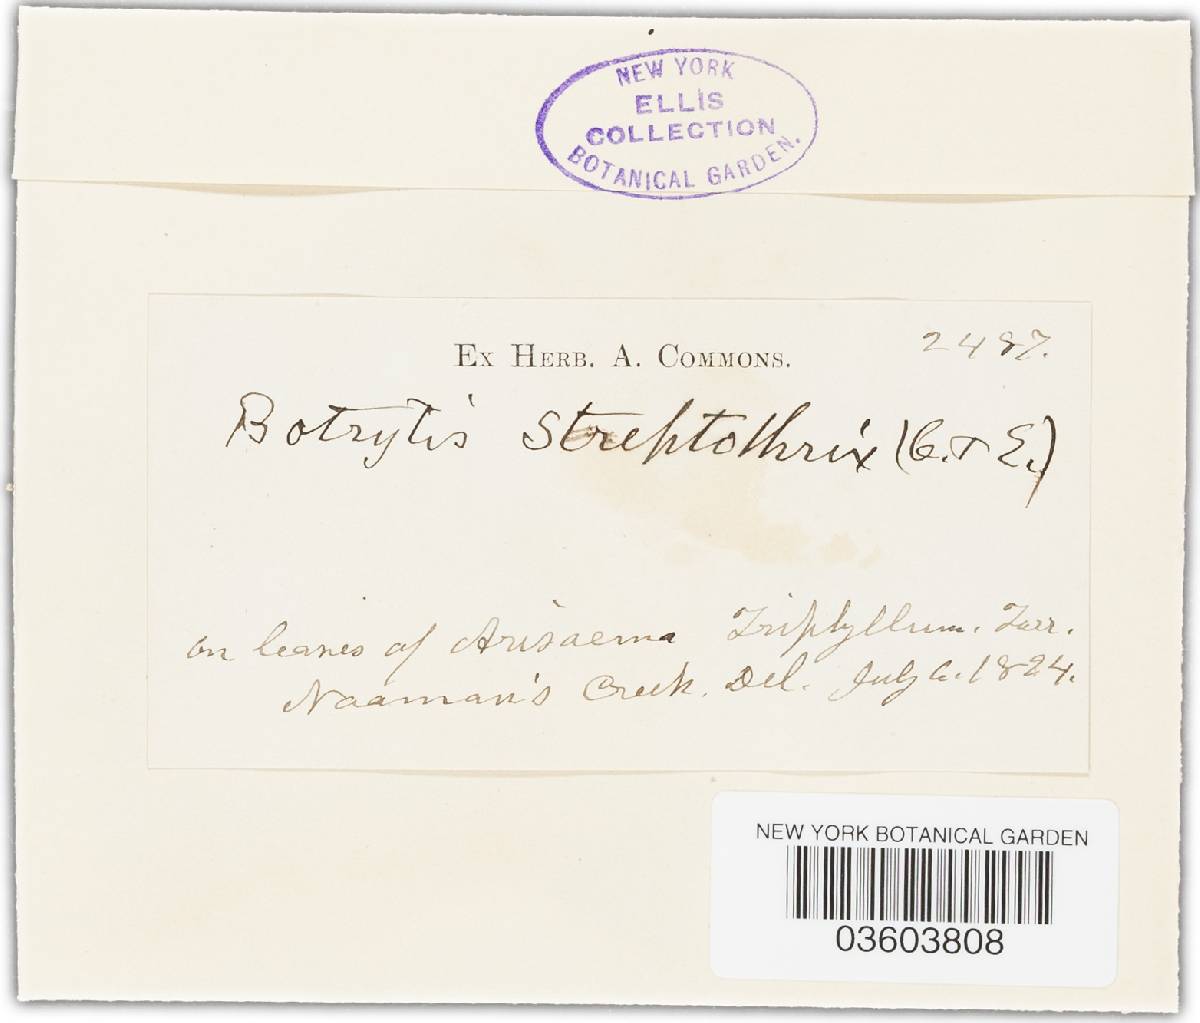 NEW YORK
ELLIS
COLLECTION
BOTANICAL GARDEN.
EX HERB. A. COMMONS.
2487.
Botrytis Streptothrix (C. & E.)
on leaves of Arisaema Triphyllum. Torr.
Naaman's Creek. Del. July 6. 1884.
NEW YORK BOTANICAL GARDEN
03603808